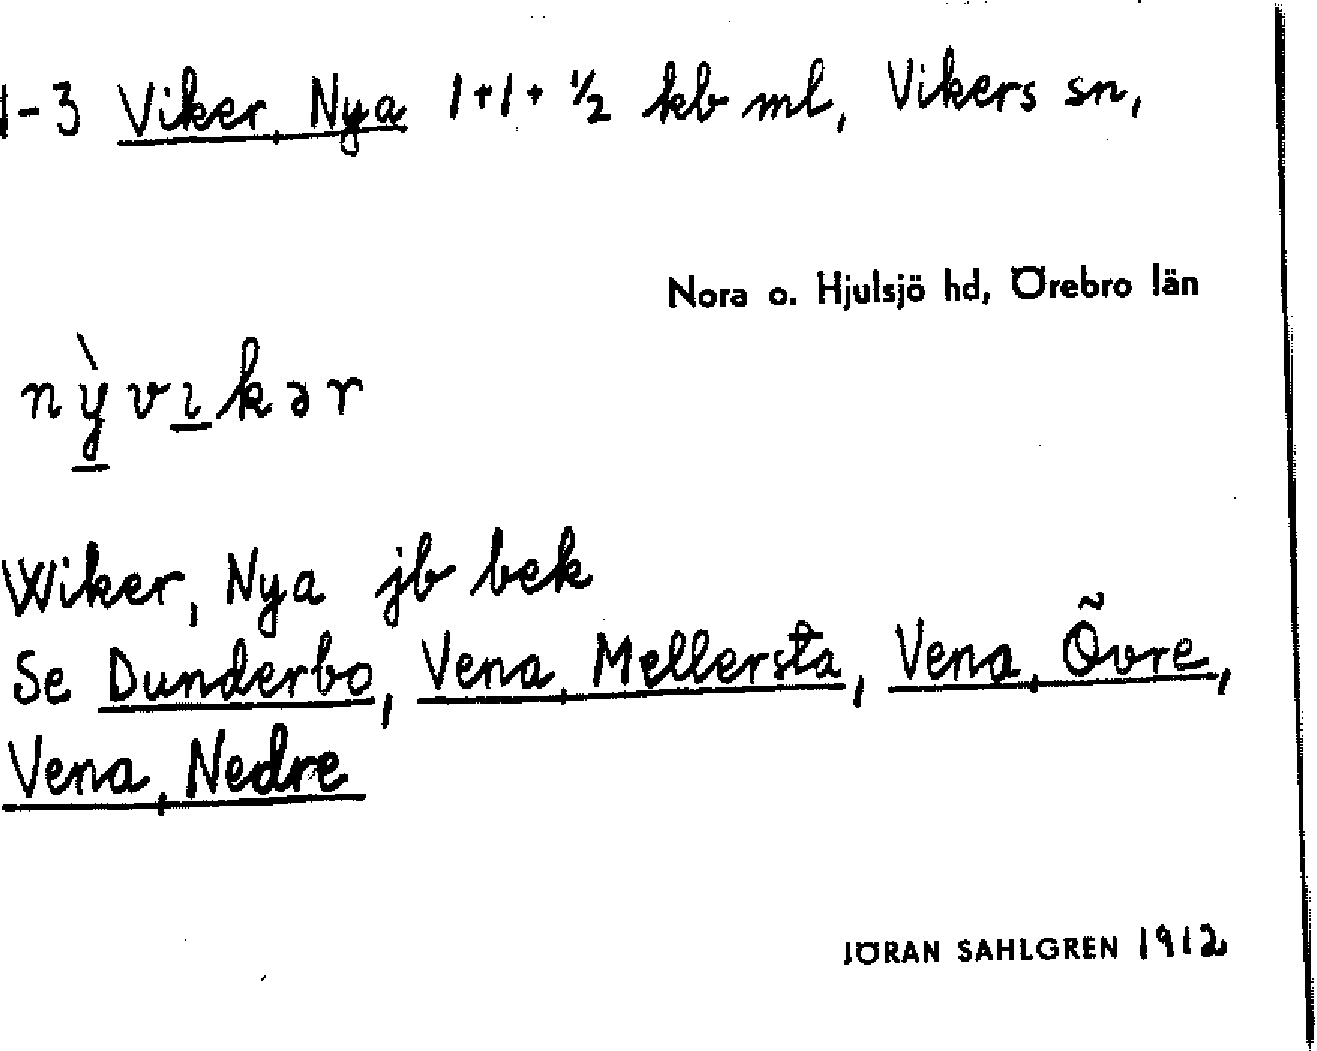 1-3 Viker, Nya 1+1+ ½ kb ml, Vikers sn,
Nora o. Hjulsjö hd, Örebro län
nỳ̲vı̲kər
Wiker, Nya jb bek
Se Dunderbo, Vena, Mellersta, Vena, Övre,
Vena, Nedre
JÖRAN SAHLGREN 1912